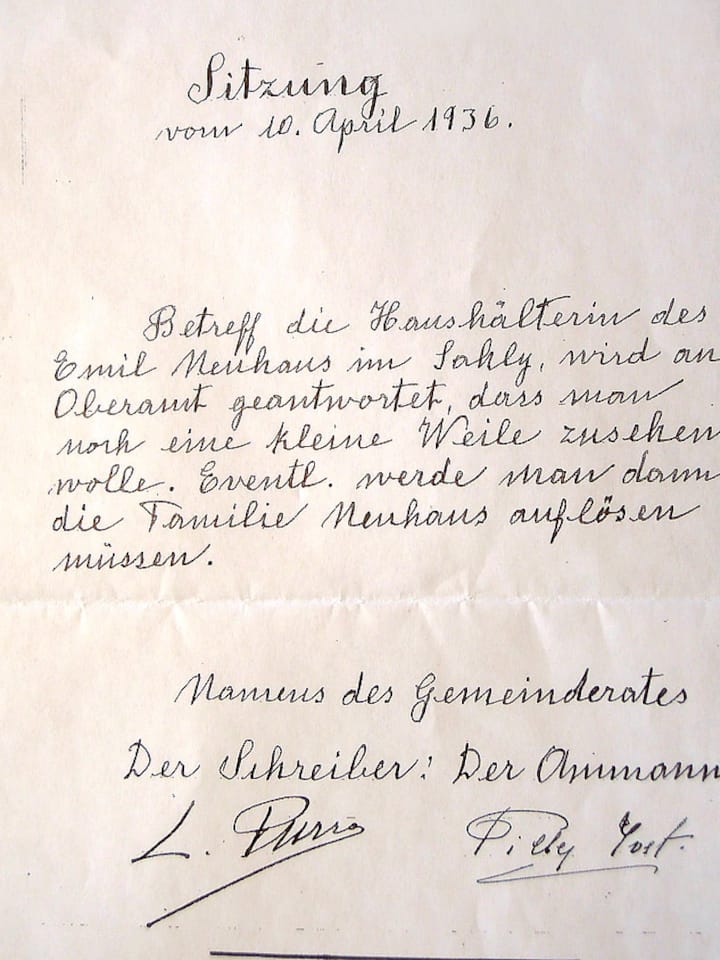 Sitzung
vom 10. April 1936.
Betreff die Haushälterin des
Emil Neuhaus im Sahly, wird an
Oberamt geantwortet, dass man
noch eine kleine Weile zusehen
wolle. Eventl. werde man dann
die Familie Neuhaus auflösen
müssen.
Namens des Gemeinderates
Der Schreiber: Der Ammann
L.